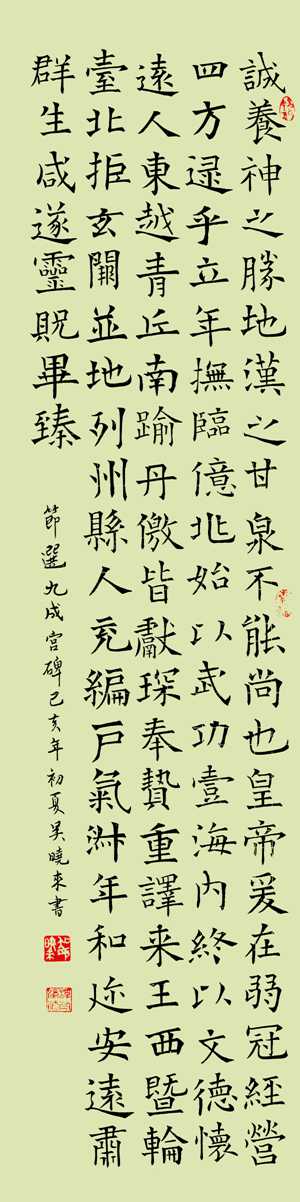 誠養神之勝地漢之甘泉不能尚也皇帝爰在弱冠經營
四方逯乎立年撫臨億兆始以武功壹海內終以文德懷
遠人東越青丘南踰丹儌皆獻琛奉贄重譯来王西暨輪
臺北拒玄闕並地列州縣人充編戶氣淋年和迩安遠肅
群生咸遂靈貺畢臻
節選九成宮碑己亥年初夏吴曉来書